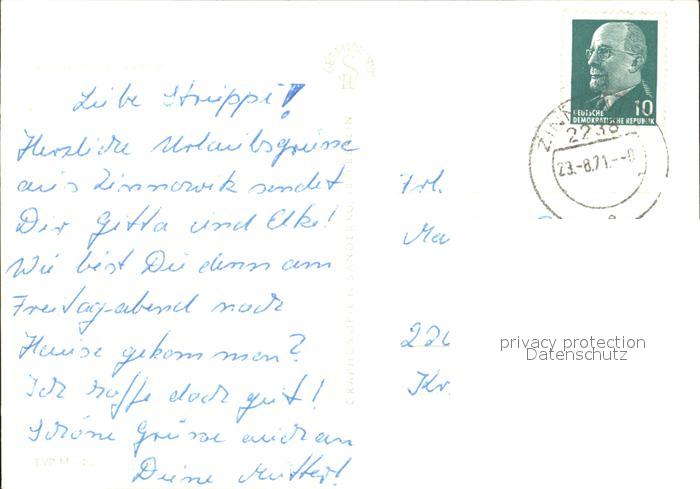 Liebe Struppi!
Herzliche Urlaubsgrüsse
aus Zinnowik sendet
Dir Gitta und Elke!
Wie bist Du denn am
Freitag-abend nach
Hause gekommen?
Ich hoffe doch gut!
Schöne Grüsse auch an
Deine Mutter!
Frl.
Ma
Kr.
DEUTSCHE
DEMOKRATISCHE REPUBLIK
10
2238
23.-8.71.--8
privacy protection
Datenschutz